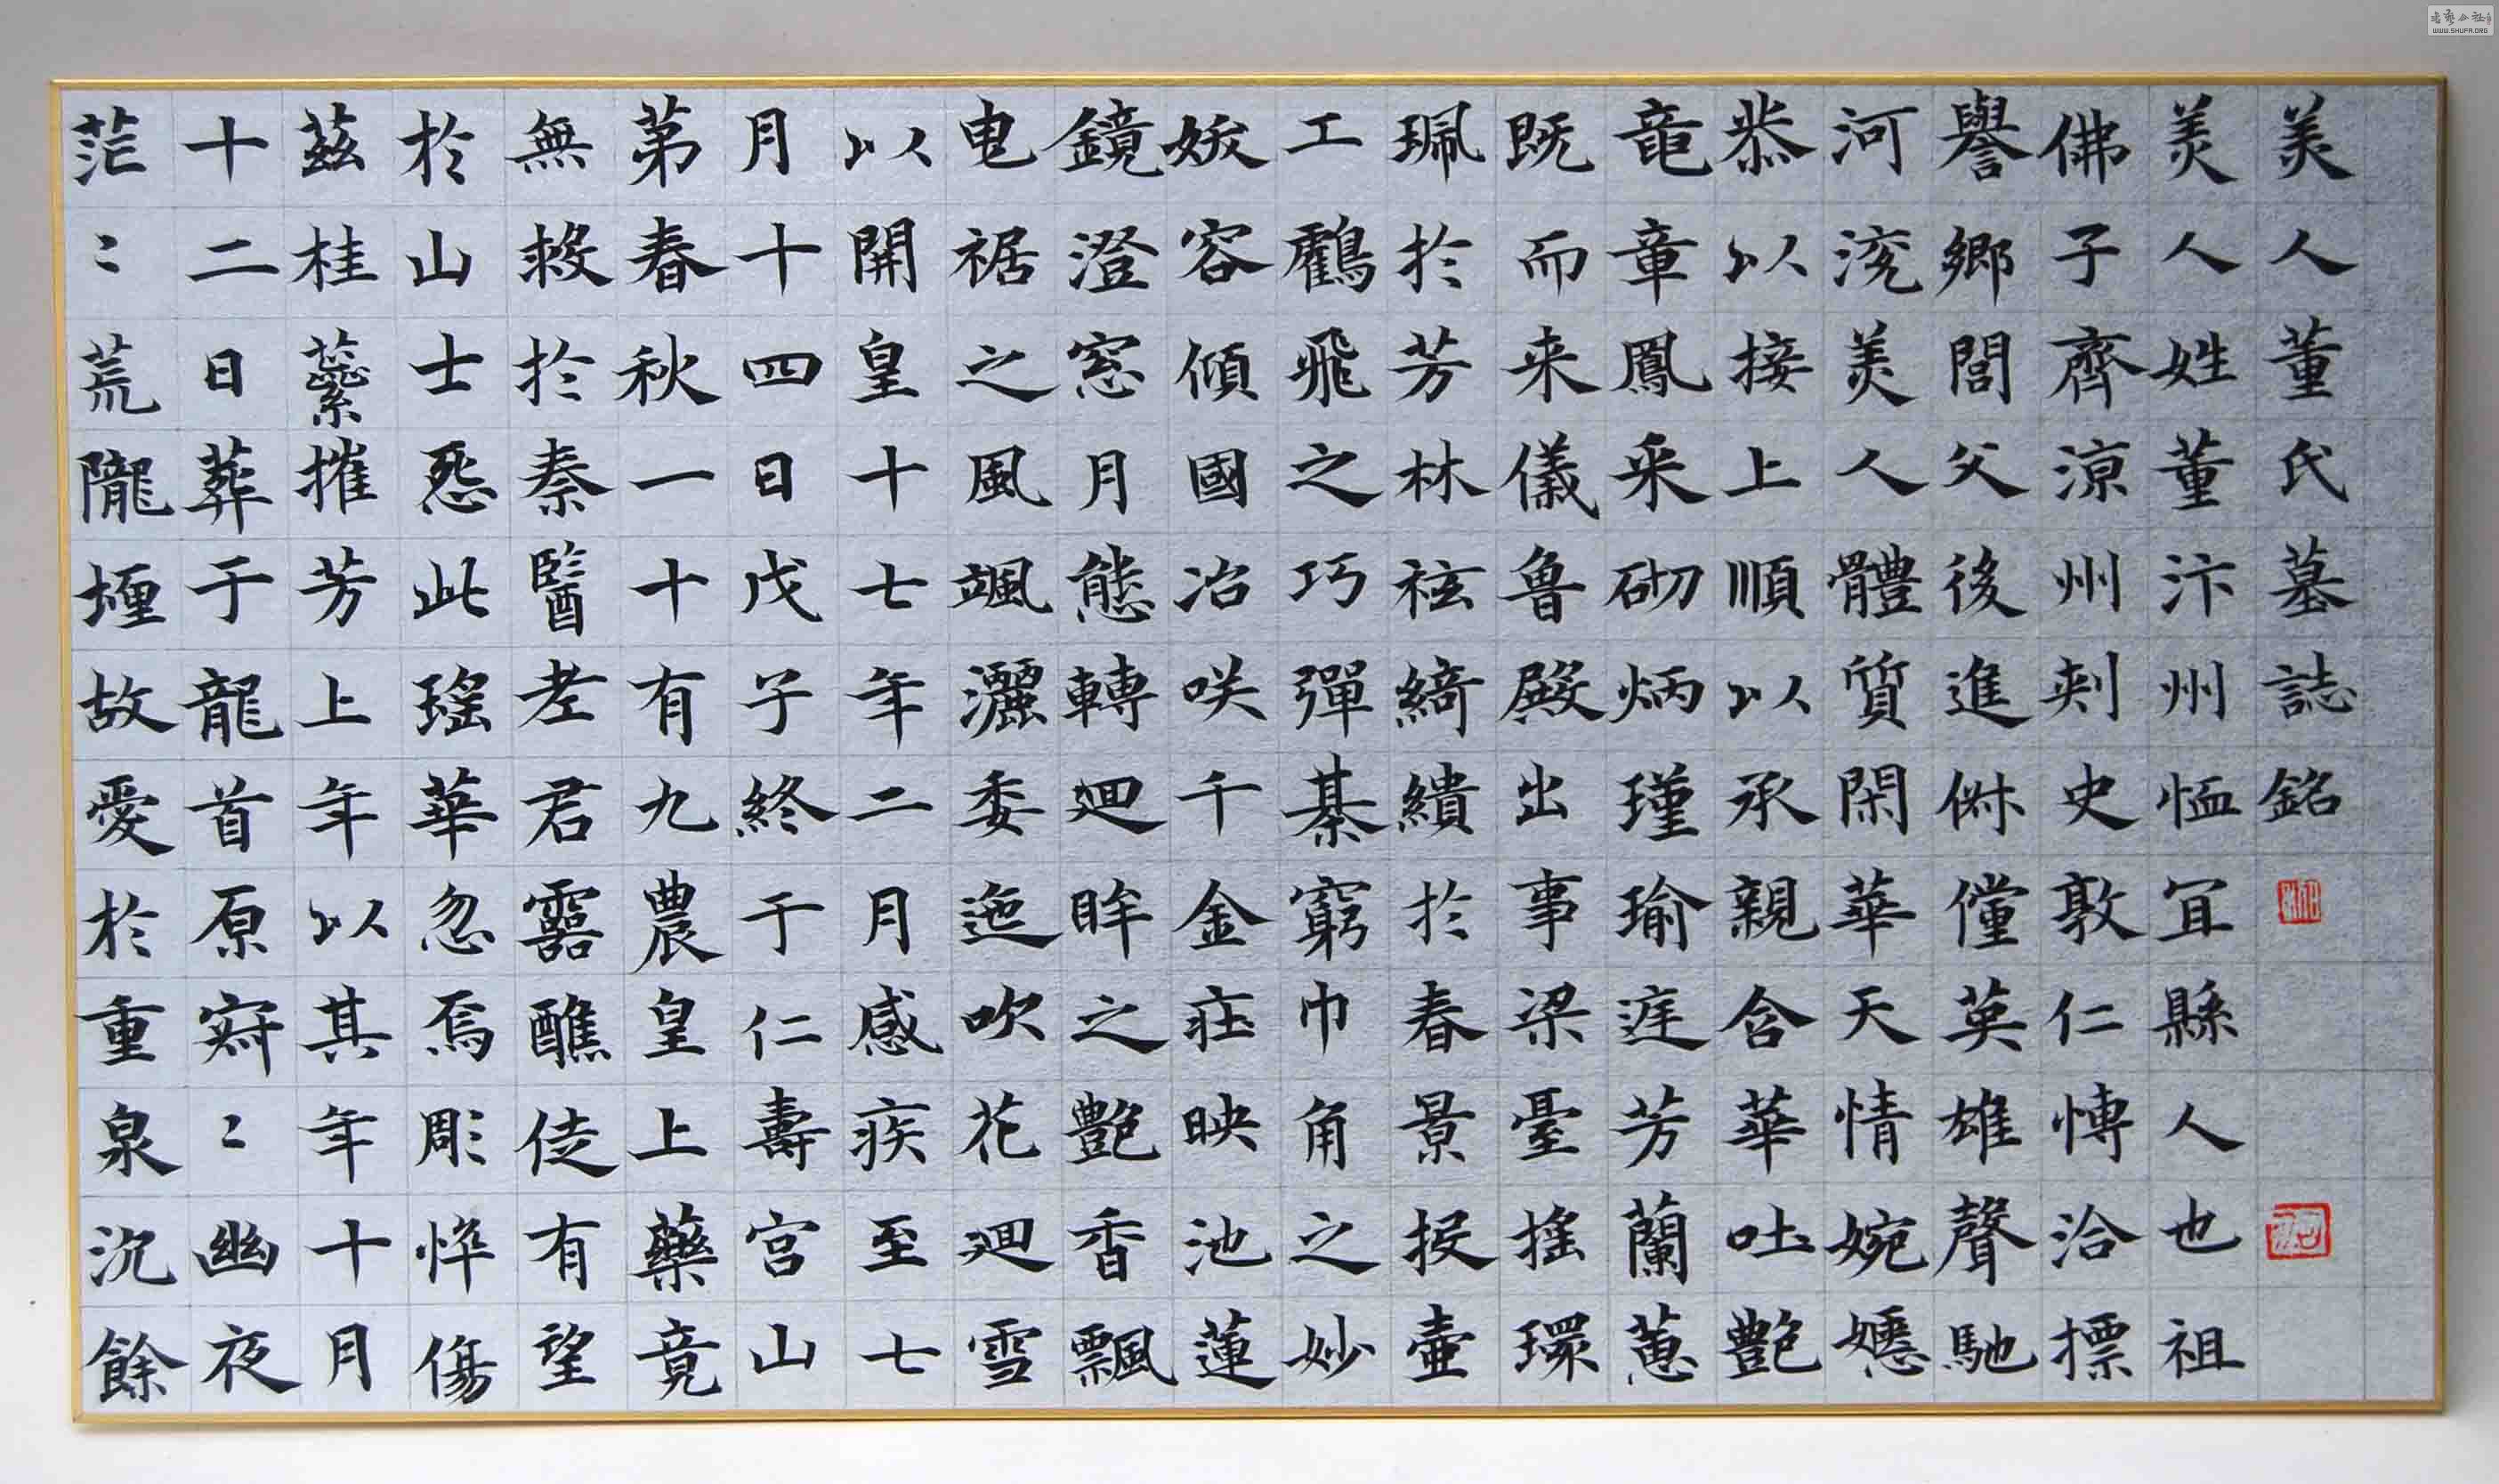 美人董氏墓誌銘
美人姓董汴州恤宜縣人也祖
佛子齊涼州刾史敦仁博洽摽
譽鄉閭父後進俶儻英雄聲馳
河渷美人體質閑華天情婉嬺
恭以接上順以承親含華吐艷
竜章鳳采砌炳瑾瑜庭芳蘭蕙
既而来儀魯殿出事梁臺搖環
珮於芳林袨綺繢於春景投壺
工鸖飛之巧彈棊窮巾角之妙
妖容傾國冶咲千金莊映池蓮
鏡澄窓月態轉廻眸之艷香飄
曳裾之風颯灑委迤吹花廻雪
以開皇十七年二月感疾至七
月十四日戊子終于仁壽宮山
第春秋一十有九農皇上藥竟
無救於秦醫老君靈醮徒有望
於山士怨此瑤華忽焉彫悴傷
茲桂蘂摧芳上年以其年十月
十二日葬于龍首原寂〻幽夜
茫〻荒隴堙故愛於重泉沉餘
WWW.SHUFA.ORG